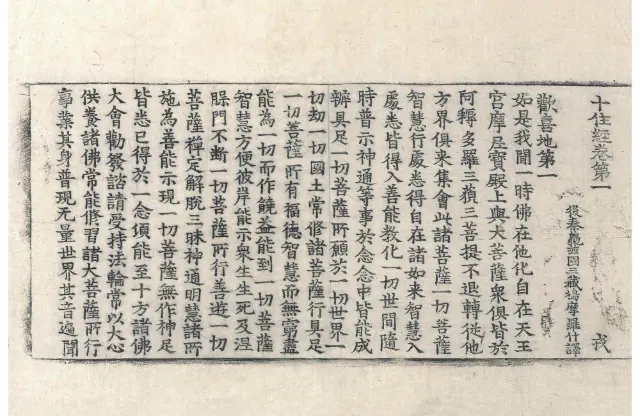 十住經卷第一
後秦龜茲國三藏鳩摩羅什譯 戎
歡喜地第一
如是我聞一時佛在他化自在天王
宮摩尼寶殿上與大菩薩衆俱皆於
阿耨多羅三藐三菩提不退轉從他
方界俱來集會此諸菩薩一切菩薩
智慧行處悉得自在諸如來智慧入
處悉皆得入善能教化一切世間隨
時普示神通等事於念念中皆能成
辨具足一切菩薩所願於一切世界一
切劫一切國土常修諸菩薩行具足
一切菩薩所有福德智慧而無窮盡
能為一切而作饒益能到一切菩薩
智慧方便彼岸能示衆生生死及涅
槃門不斷一切菩薩所行善遊一切
菩薩禪定解脫三昧神通明慧諸所
施為善能示現一切菩薩無作神足
皆悉已得於一念頃能至十方諸佛
大會勸發諮請受持法輪常以大心
供養諸佛常能修習諸大菩薩所行
事業其身普現无量世界其音遍聞